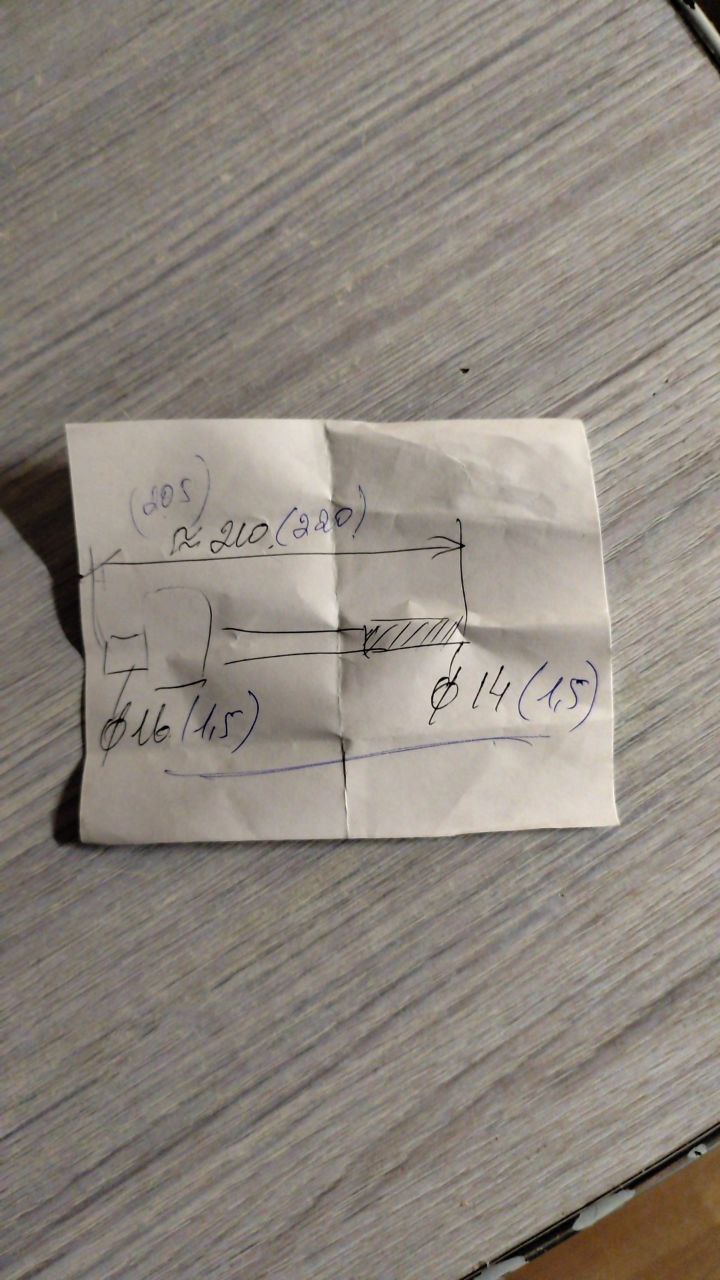 (205)
≈ 210 (220)
ϕ 16 (1,5)
ϕ 14 (1,5)